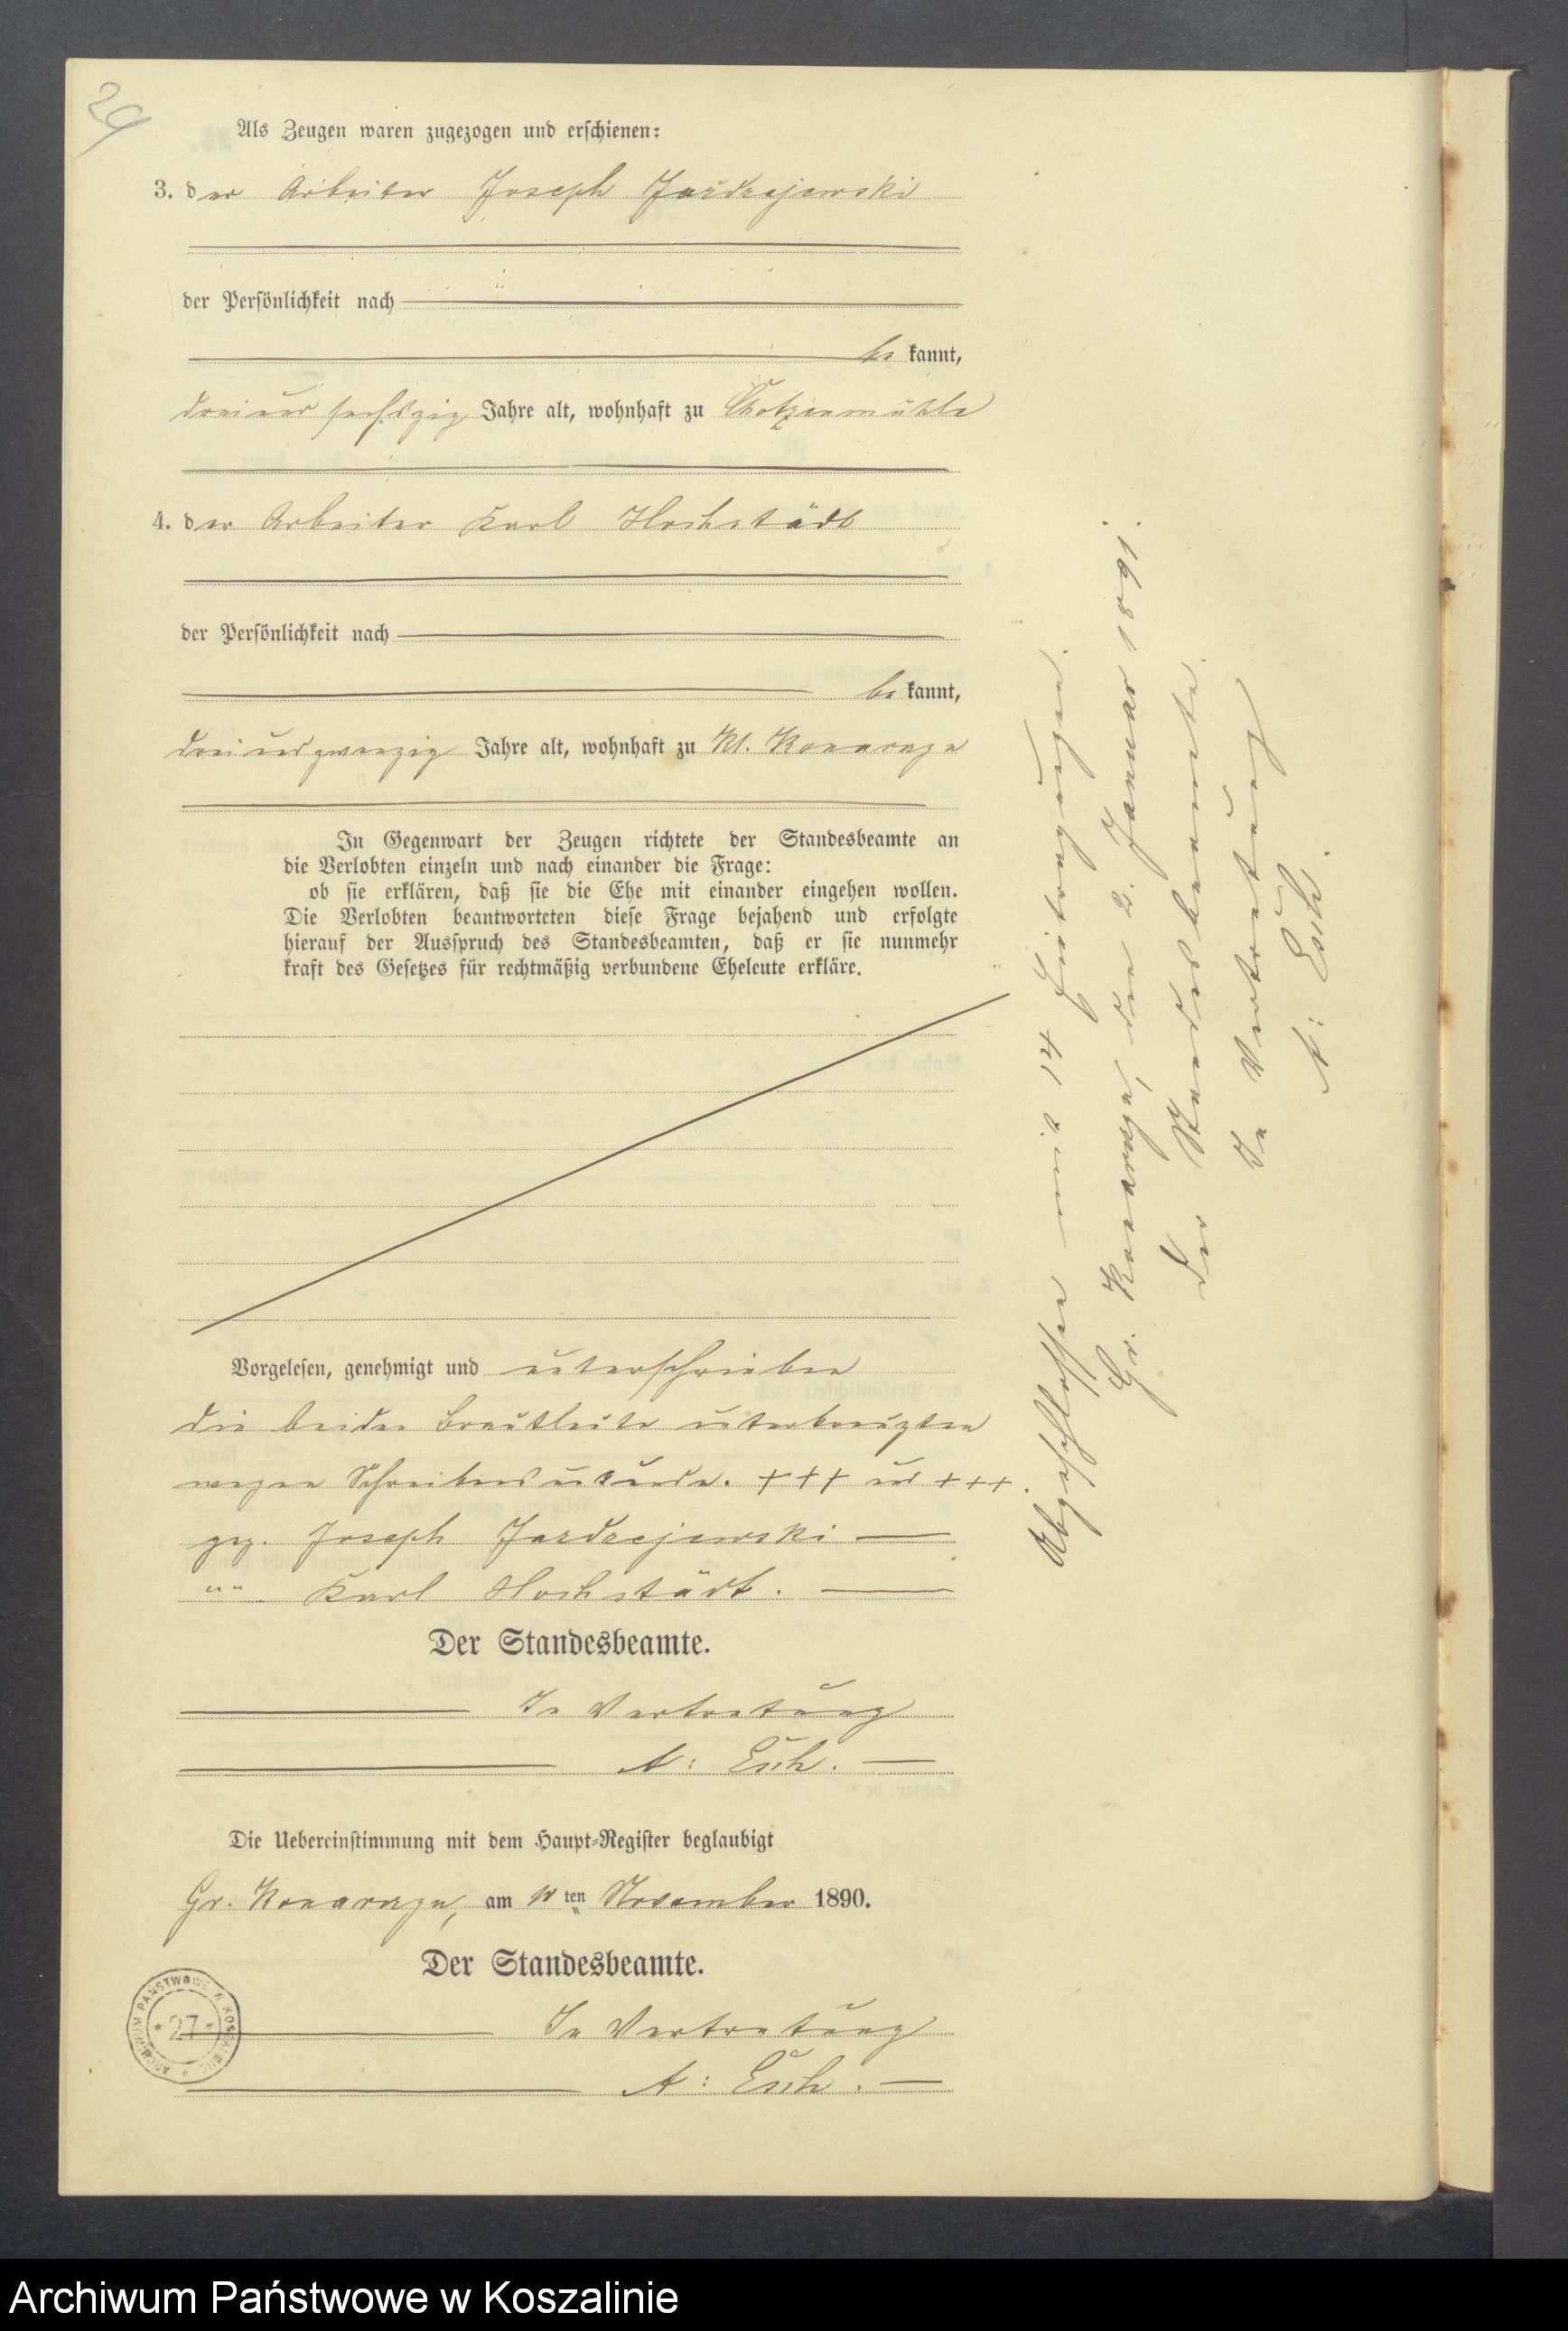 29
Als Zeugen waren zugezogen und erschienen:
3. der Arbeiter Joseph Jazdzejewski
der Persönlichkeit nach
be kannt,
dreiundsechszig Jahre alt, wohnhaft zu Chotzenmühle
4. der Arbeiter Karl Hochstädt
der Persönlichkeit nach
be kannt,
dreiundzwanzig Jahre alt, wohnhaft zu Kl. Konarzyn
In Gegenwart der Zeugen richtete der Standesbeamte an
die Verlobten einzeln und nach einander die Frage:
ob sie erklären, daß sie die Ehe mit einander eingehen wollen.
Die Verlobten beantworteten diese Frage bejahend und erfolgte
hierauf der Ausspruch des Standesbeamten, daß er sie nunmehr
kraft des Gesetzes für rechtmäßig verbundene Eheleute erkläre.
Vorgelesen, genehmigt und unterschrieben
die beiden Brautleute unterkreuzten
wegen Schreibensunkunde. +++ und +++.
gez. Joseph Jazdzejewski
"" Karl Hochstädt.
Der Standesbeamte.
In Vertretung
A: Esch.
Die Uebereinstimmung mit dem Haupt-Register beglaubigt
Gr. Konarzyn, am ten November 1890.
Der Standesbeamte.
In Vertretung
A: Esch.
Abgeschlossen mit 14 Eintragungen.
Gr. Konarzyn, den 2. Januar 1891.
Der Standesbeamte.
In Vertretung
A: Esch.
ARCHIWUM PAŃSTWOWE W KOSZALINIE
* 27 *
Archiwum Państwowe w Koszalinie